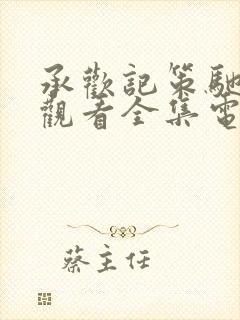 承歡記策馳
觀看全集電
蔡主任